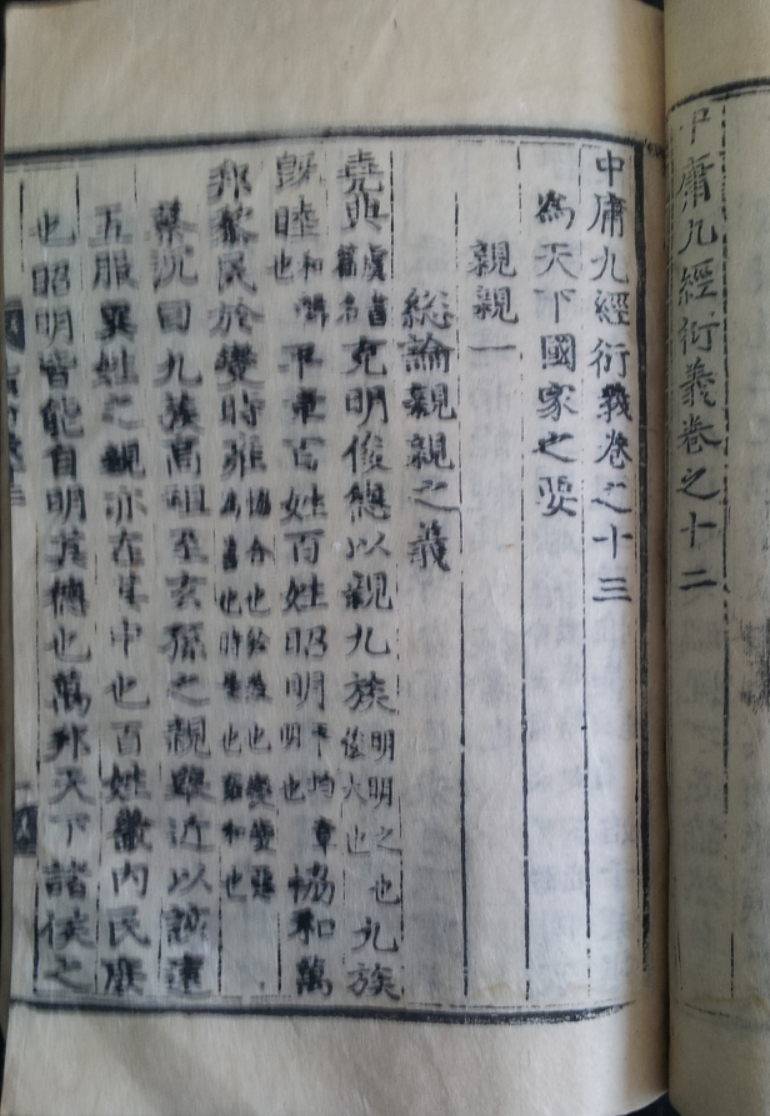 中庸九經衍義卷之十二
中庸九經衍義卷之十三
為天下國家之要
親親一
総論親親之義
堯典虞書篇名克明俊德以親九族明明之也俊大也九族
既睦和也平章百姓百姓昭明平均章明也協和萬
邦黎民於變時雍協合也黎也變變惡為善也時是也雍和也
蔡沉曰九族高祖至玄孫之親舉近以該遠
五服異姓之親亦在其中也百姓畿內民庶
也昭明皆能自明其德也萬邦天下諸侯之